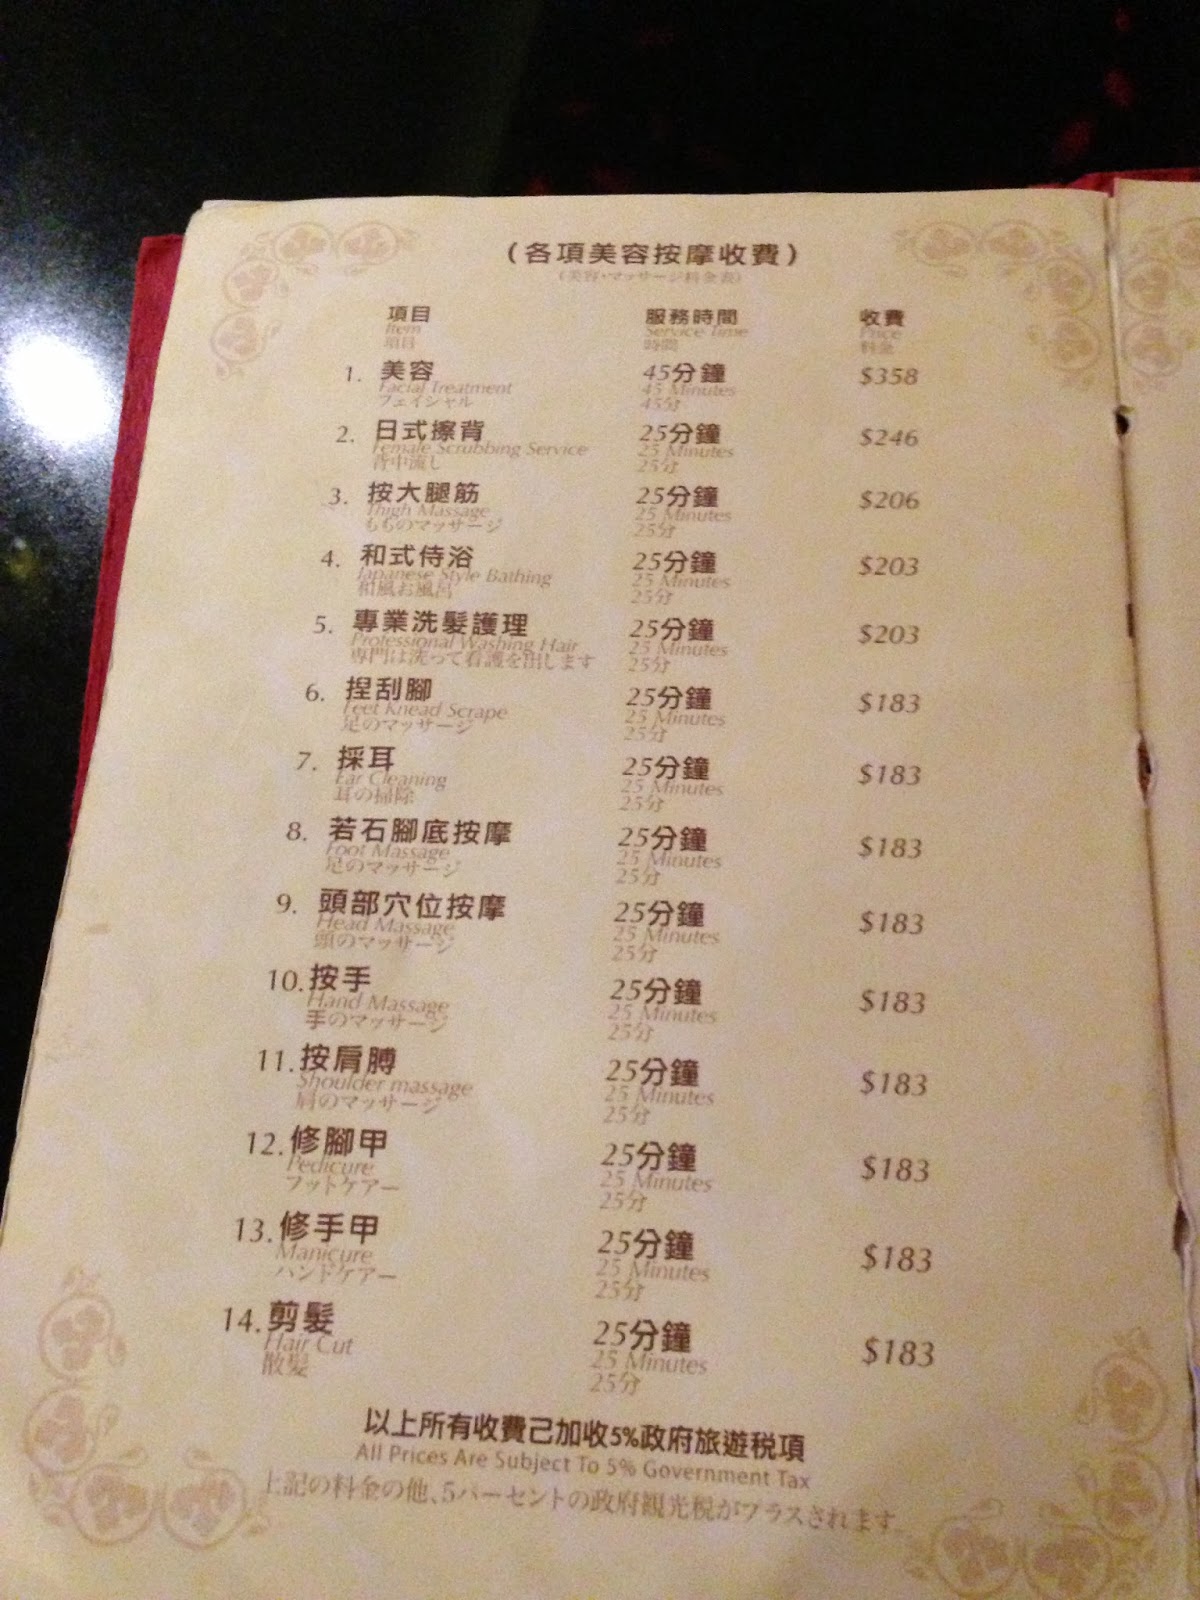 （各項美容按摩收費）
（美容・マッサージ料金表）
項目 服務時間 收費
Item Service Time Price
項目 時間 料金
1. 美容 45分鐘 $358
Facial Treatment 45 Minutes
フェイシャル 45分
2. 日式擦背 25分鐘 $246
Female Scrubbing Service 25 Minutes
背中流し 25分
3. 按大腿筋 25分鐘 $206
Thigh Massage 25 Minutes
もものマッサージ 25分
4. 和式侍浴 25分鐘 $203
Japanese Style Bathing 25 Minutes
和風お風呂 25分
5. 專業洗髮護理 25分鐘 $203
Professional Washing Hair 25 Minutes
専門は洗って看護を出します 25分
6. 捏刮腳 25分鐘 $183
Feet Knead Scrape 25 Minutes
足のマッサージ 25分
7. 採耳 25分鐘 $183
Ear Cleaning 25 Minutes
耳の掃除 25分
8. 若石腳底按摩 25分鐘 $183
Foot Massage 25 Minutes
足のマッサージ 25分
9. 頭部穴位按摩 25分鐘 $183
Head Massage 25 Minutes
頭のマッサージ 25分
10. 按手 25分鐘 $183
Hand Massage 25 Minutes
手のマッサージ 25分
11. 按肩膊 25分鐘 $183
Shoulder massage 25 Minutes
肩のマッサージ 25分
12. 修腳甲 25分鐘 $183
Pedicure 25 Minutes
フットケアー 25分
13. 修手甲 25分鐘 $183
Manicure 25 Minutes
ハンドケアー 25分
14. 剪髮 25分鐘 $183
Hair Cut 25 Minutes
散髪 25分
以上所有收費己加收5%政府旅遊稅項
All Prices Are Subject To 5% Government Tax
上記の料金の他、5パーセントの政府観光税がプラスされます